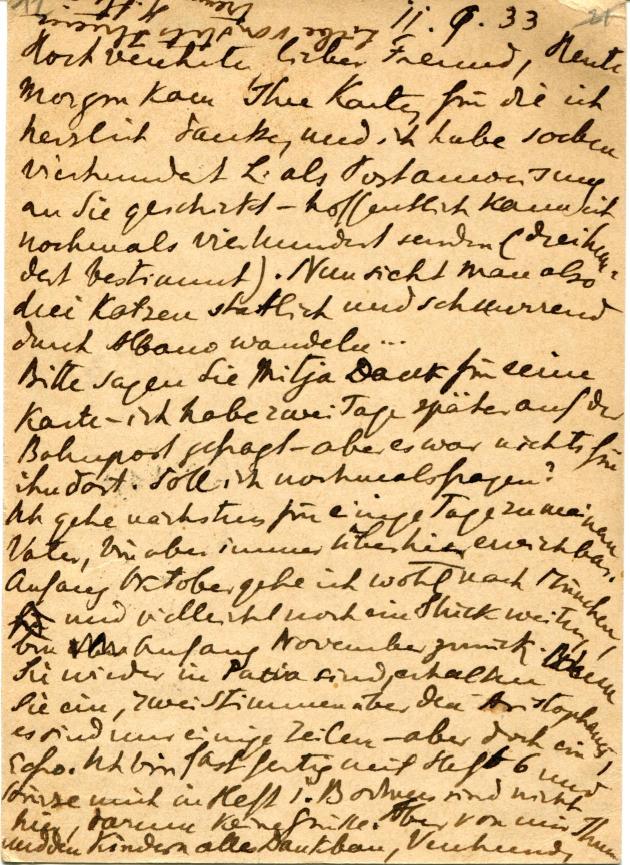 11. 9. 33
Hochverehrter lieber Freund, Heute
Morgen kam Ihre Karte, für die ich
herzlich danke, und ich habe soeben
vierhundert L. als Postanweisung
an Sie geschickt – hoffentlich kann ich
nochmals vierhundert senden (dreihun-
dert bestimmt). Nun sieht man also
drei Katzen stattlich und schnurrend
durch Albano wandeln...
Bitte sagen Sie Mitja Dank für seine
Karte – ich habe zwei Tage später auf der
Bahnpost gefragt – aber es war nichts für
ihn dort. Soll ich nochmals fragen?
Ich gehe nächstens für einige Tage zu meinem
Vater, bin aber immer über hier erreichbar.
Anfang Oktober gehe ich wohl nach München,
und vielleicht noch ein Stück weiter,
bin Anfang November zurück. Wenn
Sie wieder in Pavia sind, erhalten
Sie ein, zwei Stimmen über den Aristophanes,
es sind nur einige Zeilen – aber doch ein
Echo. Ich bin fast fertig mit Heft 6 und
mich in Heft 1. Bodmers sind nicht
hier, darum keine Grüße. Aber von mir Ihnen
und den Kindern alle Dankbar, Verehrend